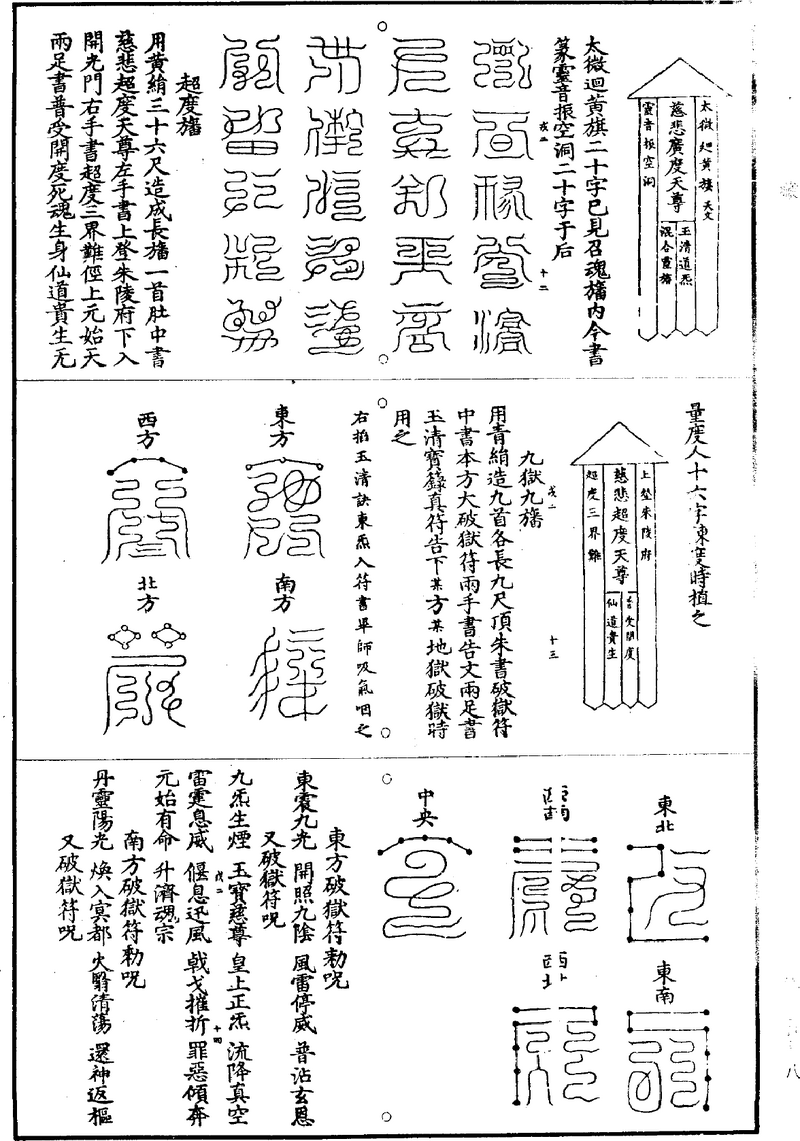 太微迴黃旗 天文
慈悲廣度天尊
玉清道炁
混合靈旛
靈音振空洞
太微迴黃旗二十字已見召魂旛內今書
篆靈音振空洞二十字于后
戊二
十二
超度旛
用黃絹三十六尺造成長旛一首肚中書
慈悲超度天尊左手書上登朱陵府下入
開光門右手書超度三界難徑上元始天
兩足書普受開度死魂生身仙道貴生无
量度人十六字凍度時植之
上登朱陵府
慈悲超度天尊
普受開度
仙道貴生
超度三界難
九獄九旛
戊二
十三
用青絹造九首各長九尺頂朱書破獄符
中書本方大破獄符兩手書告文兩足書
玉清寶籙真符告下某方某地獄破獄時
用之
右掐玉清訣東炁入符書畢師吸氣咽之
東方
南方
西方
北方
東北
東南
西南
西北
中央
東方破獄符勅呪
東震九光 開照九陰 風雷停威 普沾玄恩
又破獄符呪
九炁生煙 玉寶慈尊 皇上正炁 流降真空
雷霆息威 偃息迅風 戟戈摧折 罪惡傾奔
戊二
十四
元始有命 升濟魂宗
南方破獄符勅呪
丹靈陽光 煥入冥都 火翳清蕩 還神返樞
又破獄符呪
八